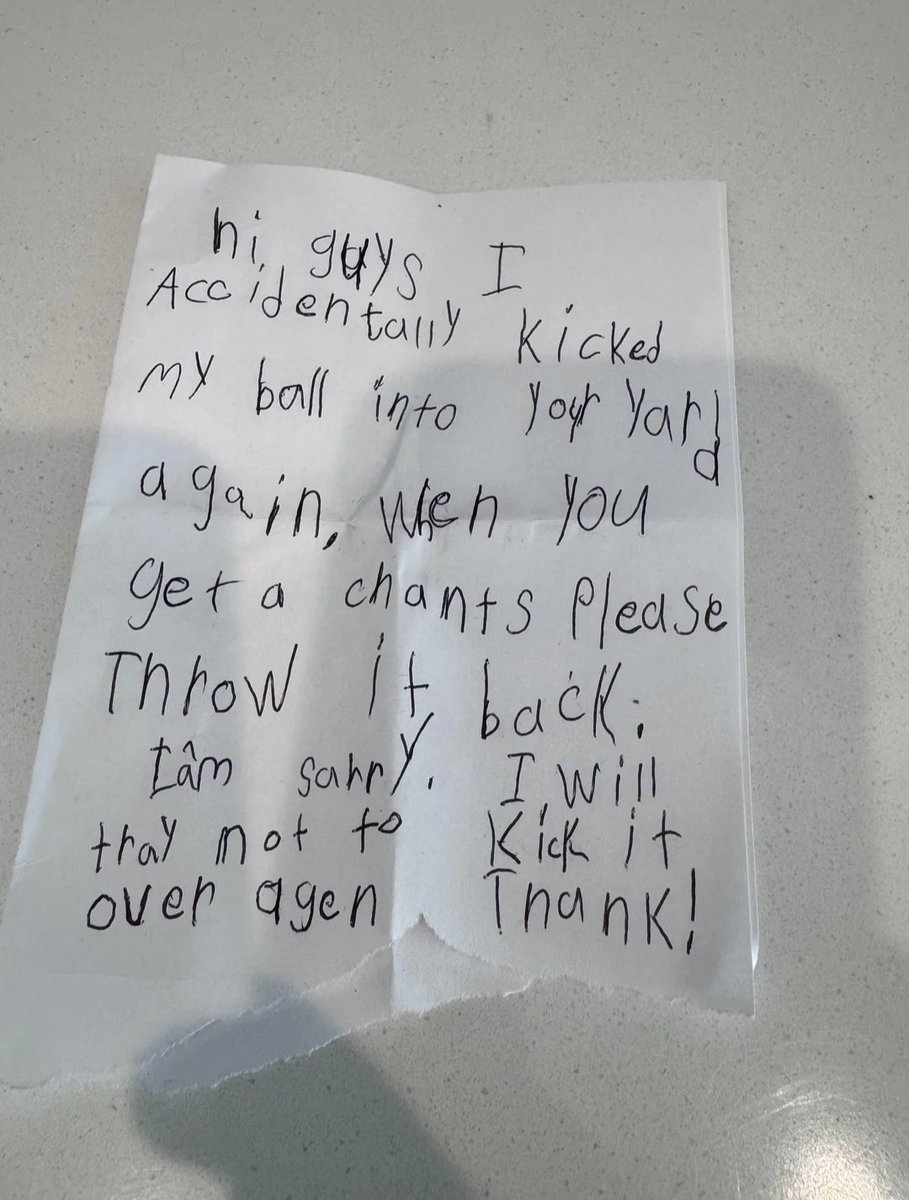 hi guys I
Accidentally kicked
my ball into your yard
again, when you
get a chants please
Throw it back.
Iâm sahry. I will
thay not to Kick it
over agen Thank!